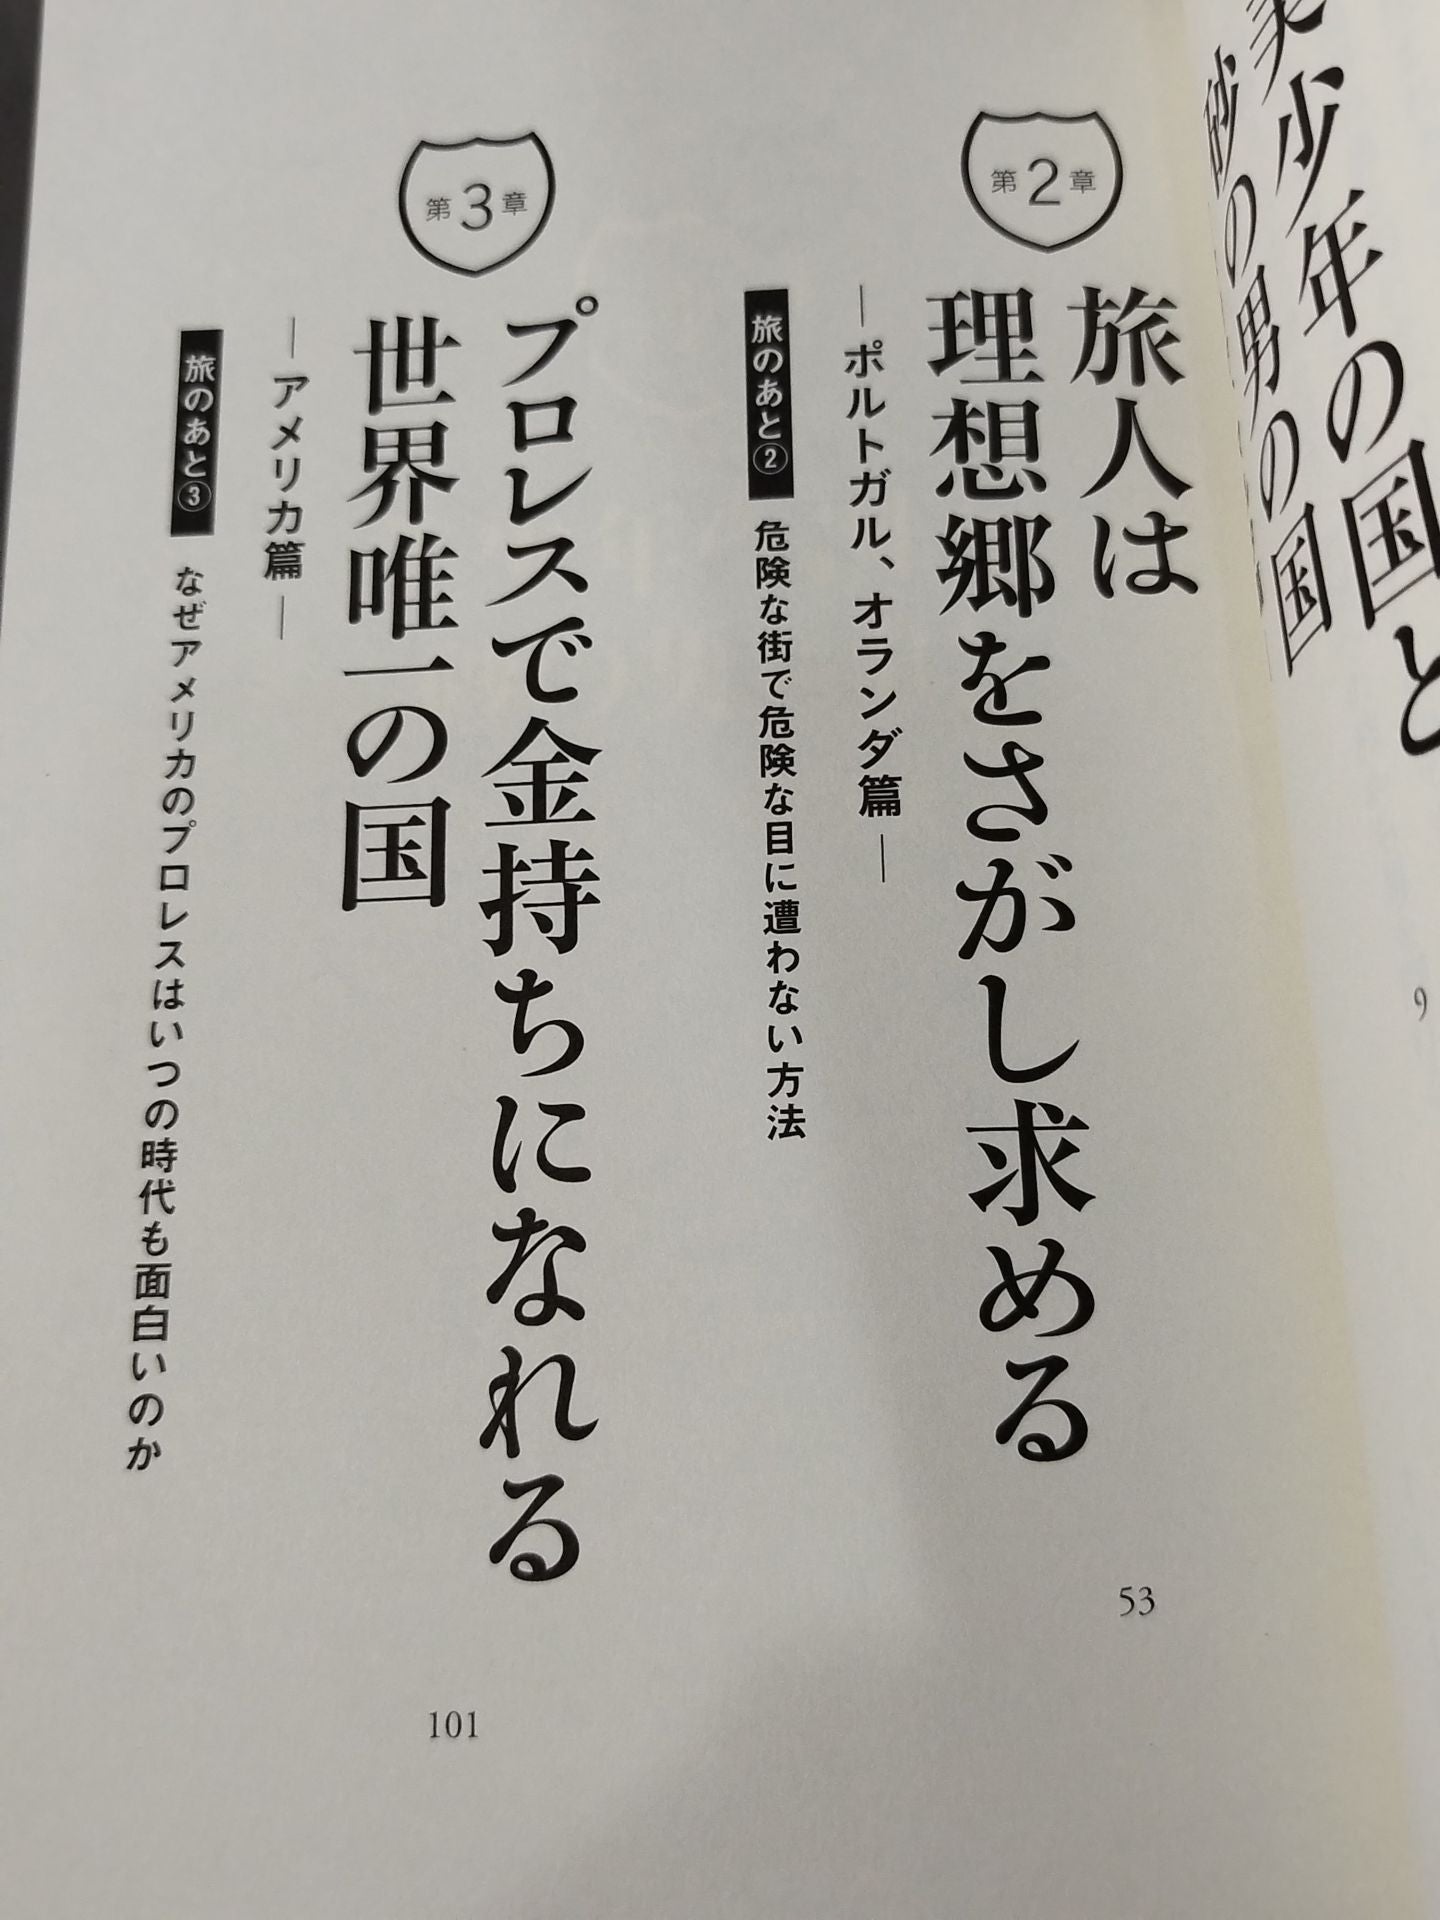 美少年の国と
砂の男の国
9
第2章
旅人は
理想郷をさがし求める
―ポルトガル、オランダ篇―
旅のあと② 危険な街で危険な目に遭わない方法
53
第3章
プロレスで金持ちになれる
世界唯一の国
―アメリカ篇―
旅のあと③ なぜアメリカのプロレスはいつの時代も面白いのか
101